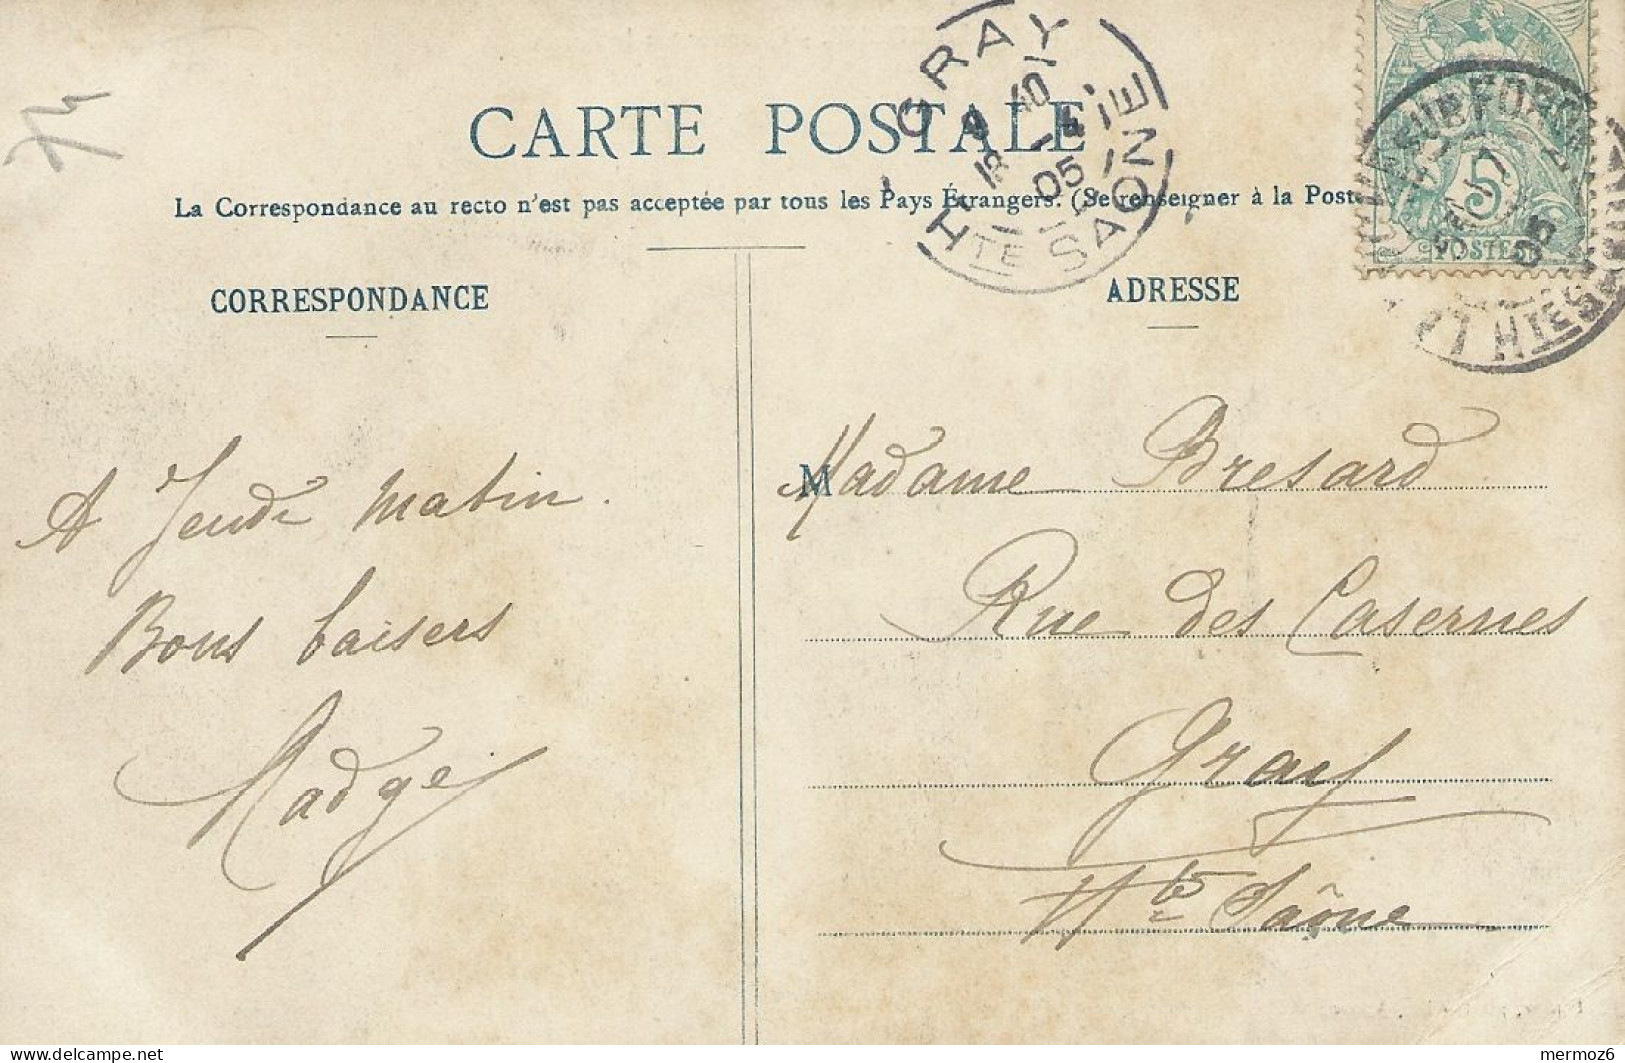 CARTE POSTALE
La Correspondance au recto n'est pas acceptée par tous les Pays Étrangers. (Se renseigner à la Poste
CORRESPONDANCE
ADRESSE
GRAY
9 40
18 -4
05
HTE SAONE
5
POSTE
05
A Jeudi matin.
Bons baisers
Madge
Madame Bresard
Rue des Casernes
Gray
Hte Saône
delcampe.net
mermoz6